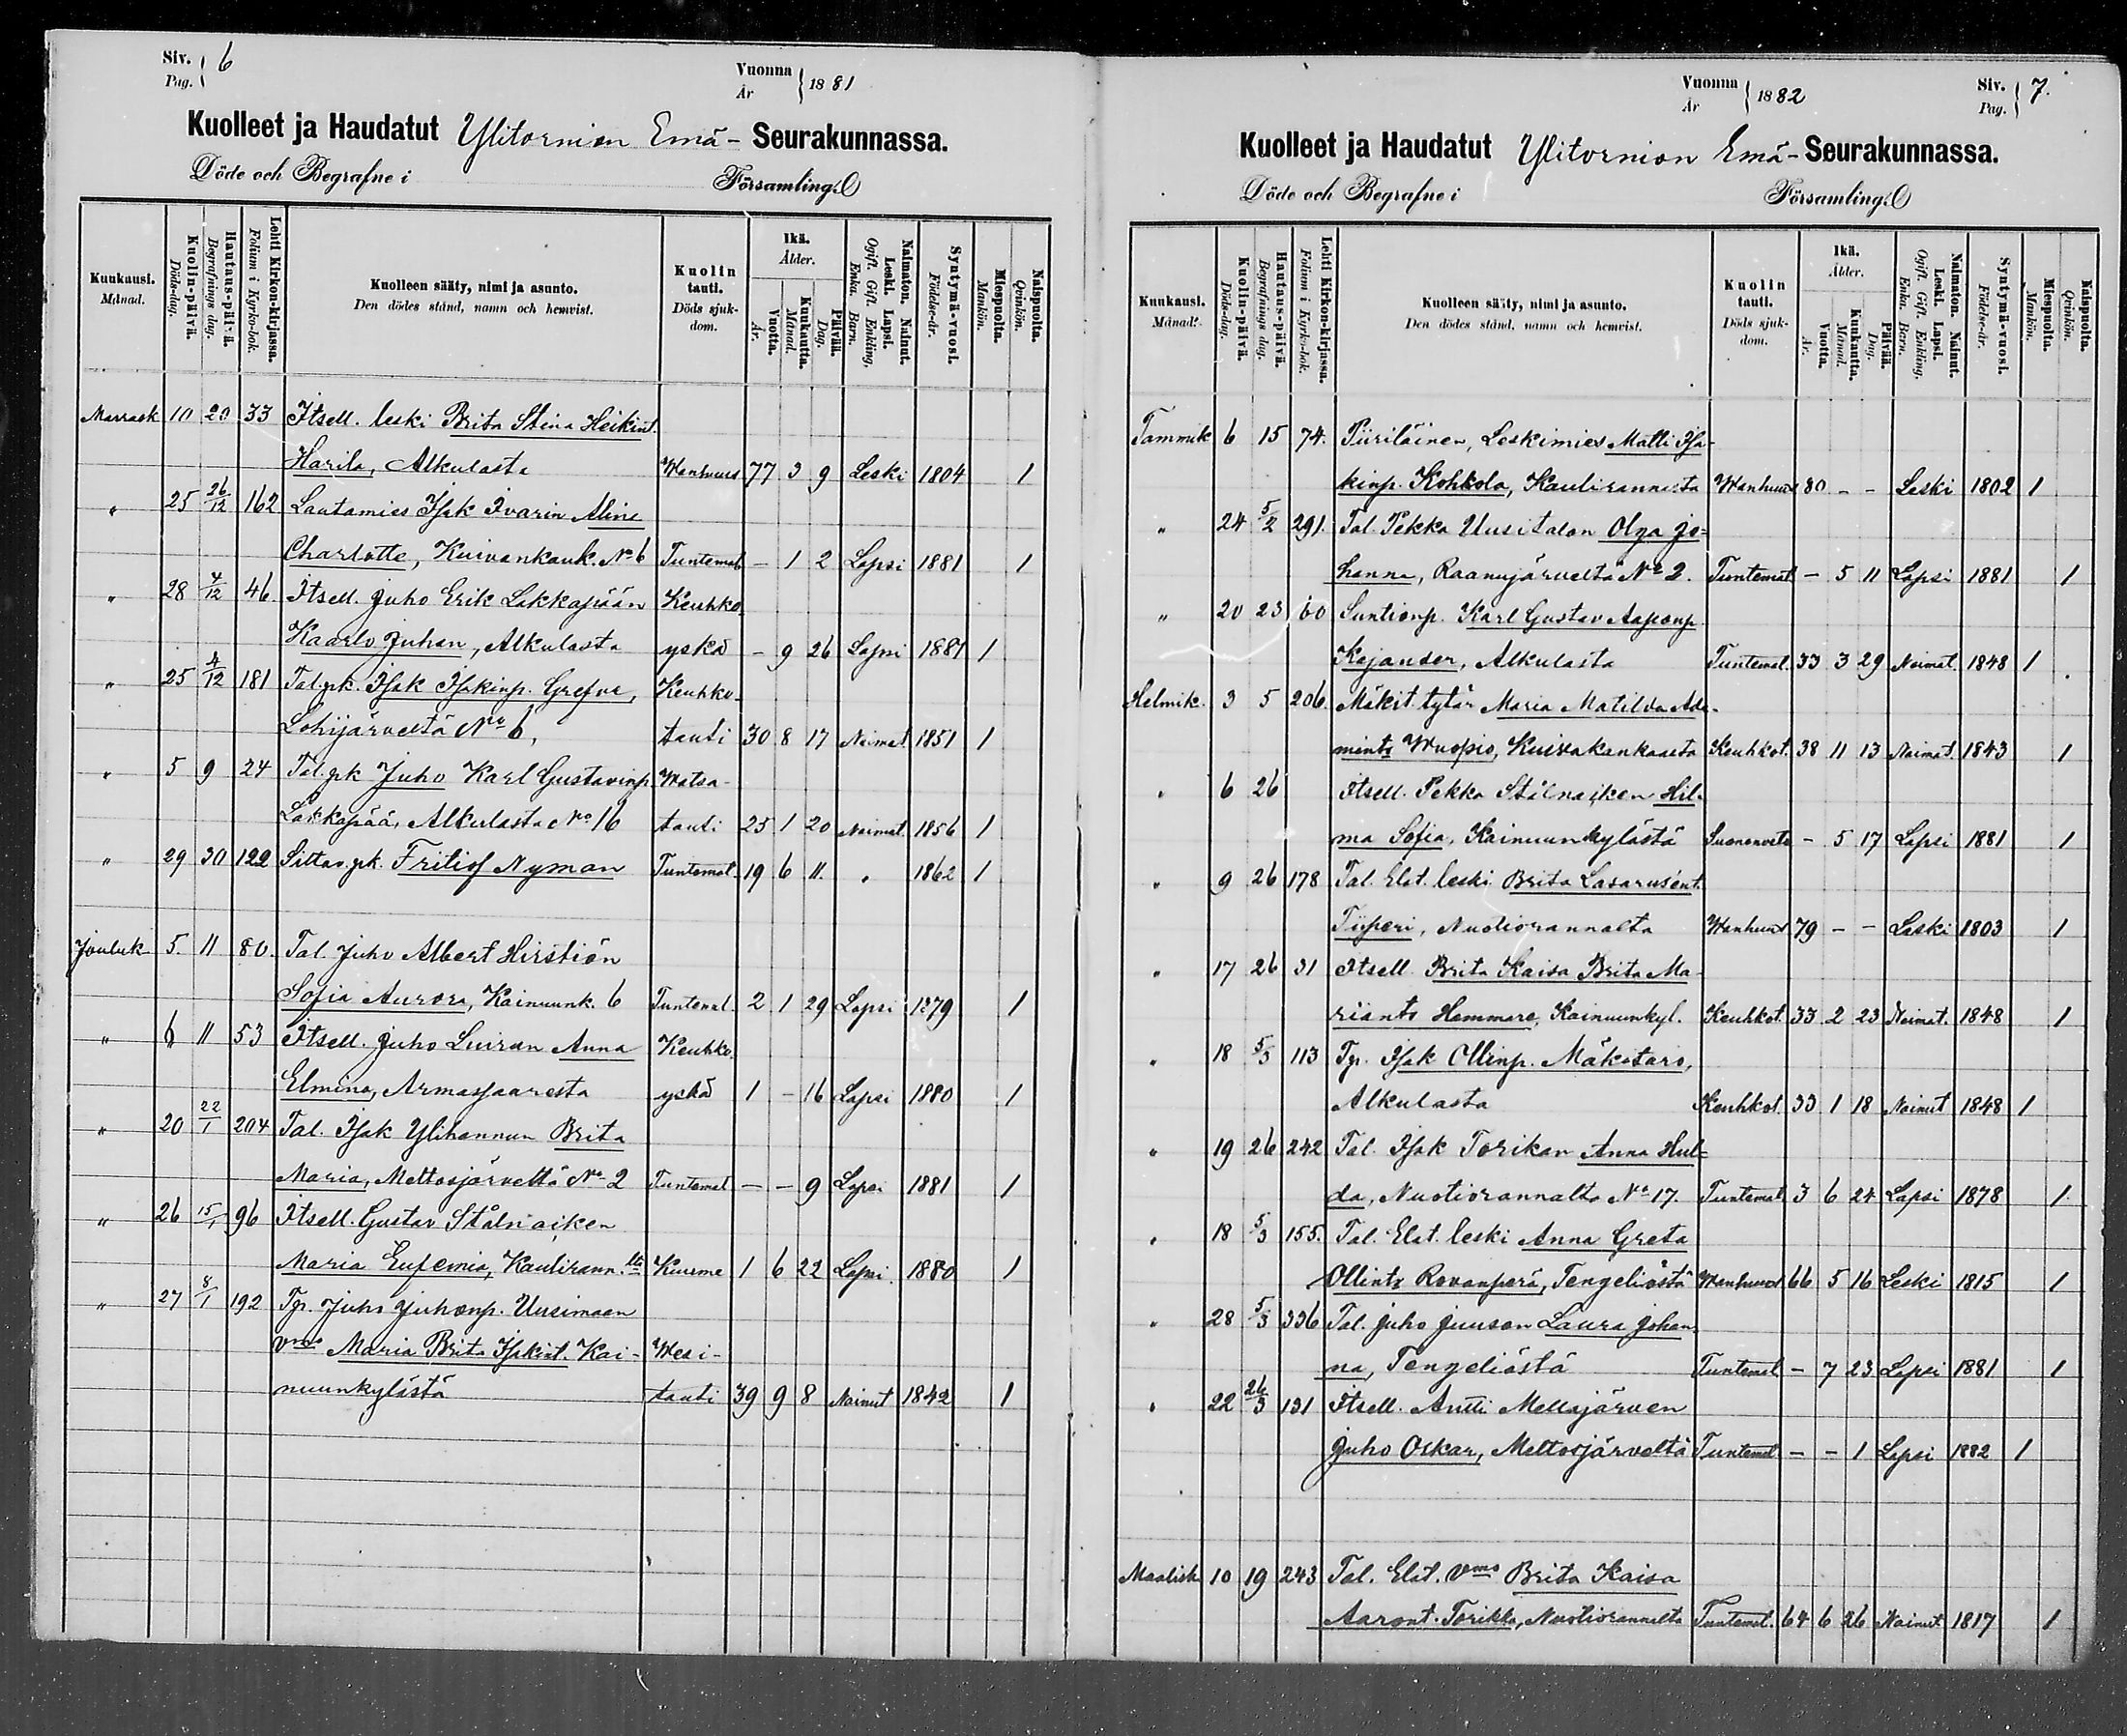 Siv. Pag. 6
Vuonna År 1881
Kuolleet ja Haudatut Ylitornion Emä- Seurakunnassa.
Döde och Begrafne i Församling.
Kuukausi. Månad.
Kuolin-päivä. Döds-dag.
Hautaus-päivä. Begrafnings dag.
Lehti Kirkon-kirjassa. Folium i Kyrko-bok.
Kuolleen sääty, nimi ja asunto.
Den dödes stånd, namn och hemvist.
Kuolin tauti. Döds sjukdom.
Ikä. Ålder.
Vuotta. År.
Kuukautta. Månad.
Päivää. Dag.
Naimaton. Nainut. Leski. Lapsi.
Ogift. Gift. Enkling, Enka. Barn.
Syntymä-vuosi. Födelse-år.
Miespuolta. Mankön.
Naispuolta. Qvinkön.
Marrask 10 20 33 Itsell. leski Brita Stina Heikint.
Harila, Alkulasta Wanhuus 77 3 9 Leski 1804 1
" 25 26/12 162 Lautamies Isak Ivarin Aline
Charlotte, Kuivankank. No 6 Tuntemat. – 1 2 Lapsi 1881 1
" 28 4/12 46. Itsell. Juho Erik Lakkapään Keuhko
Kaarlo Juhan, Alkulasta yskä – 9 26 Lapsi 1881 1
" 25 4/12 181 Tal.pk. Isak Isakinp. Grefva, Keuhko-
Lohijärveltä No 6, tauti 30 8 17 Naimat. 1851 1
" 5 9 24 Tal.pk Juho Karl Gustavinp. Watsa-
Lakkapää, Alkulasta No 16 tauti 25 1 20 Naimat. 1856 1
" 29 30 122 Sittas.pk. Fritiof Nyman Tuntemat. 19 6 11. " 1862 1
Jouluk 5. 11 80. Tal. Juho Albert Hirstiön
Sofia Aurora, Kainuunk. 6 Tuntemat. 2 1 29 Lapsi 1879 1
" 6 11 53 Itsell. Juho Luiron Anna Keuhko.
Elmina, Armassaaresta yskä 1 – 16 Lapsi 1880 1
" 20 22/1 204 Tal. Isak Ylihannun Brita
Maria, Meltosjärveltä No 2 Tuntemat – – 9 Lapsi 1881 1
" 26 15/1 96 Itsell. Gustav Stålnaiken
Maria Eufemia, Kaulirann.lta Kuume 1 6 22 Lapsi. 1880 1
" 27 8/1 192 Tp. Juho Juhonp. Uusimaan
vmo Maria Brita Isakint. Kai- Wesi-
nuunkylästä tauti 39 9 8 Nainut 1842 1
Vuonna År 1882
Siv. Pag. 7.
Kuolleet ja Haudatut Ylitornion Emä- Seurakunnassa.
Döde och Begrafne i Församling.
Kuukausi. Månad.
Kuolin-päivä. Döds-dag.
Hautaus-päivä. Begrafnings dag.
Lehti Kirkon-kirjassa. Folium i Kyrko-bok.
Kuolleen sääty, nimi ja asunto.
Den dödes stånd, namn och hemvist.
Kuolin tauti. Döds sjukdom.
Ikä. Ålder.
Vuotta. År.
Kuukautta. Månad.
Päivää. Dag.
Naimaton. Nainut. Leski. Lapsi.
Ogift. Gift. Enkling. Enka. Barn.
Syntymä-vuosi. Födelse-år.
Miespuolta. Mankön.
Naispuolta. Qvinkön.
Tammik 6 15 74. Piiriläinen, Leskimies Matti Isa-
kinp. Kohkola, Kaulirannasta Wanhuus 80 – – Leski 1802 1
" 24 5/2 291. Tal. Pekka Uusitalon Olga Jo-
hanna, Raanujärveltä No 2. Tuntemat – 5 11 Lapsi 1881 1
" 20 23 60 Suntionp. Karl Gustav Aaponp
Kajander, Alkulasta Tuntemat. 33 3 29 Naimat. 1848 1
Helmik. 3 5 206. Mäkit. tytär Maria Matilda Ada-
mints Wuopio, Kuivakankaasta Keuhkot. 38 11 13 Naimat. 1843 1
" 6 26 Itsell. Pekka Stålnaiken Hil-
ma Sofia, Kainuunkylästä Suonenveto – 5 17 Lapsi 1881 1
" 9 26 178 Tal. Elät. leski Brita Lasarusent.
Tiiperi, Nuotiorannalta Wanhuus 79 – – Leski 1803 1
" 17 26 31 Itsell. Brita Kaisa Brita Ma-
riants Hammare, Kainuunkyl. Keuhkot. 33 2 23 Naimat. 1848 1
" 18 5/3 113 Tp. Isak Ollinp. Mäkitaro,
Alkulasta Keuhkot. 33 1 18 Nainut 1848 1
" 19 26 242 Tal. Isak Torikan Anna Hul-
da, Nuotiorannalta No 17. Tuntemat. 3 6 24 Lapsi 1878 1.
" 18 5/3 155. Tal. Elät. leski Anna Greta
Ollints Rovanperä, Tengeliöstä Wanhuus 66 5 16 Leski 1815 1
" 28 5/3 336 Tal. Juho Juuson Laura Johan-
na, Tengeliöstä Tuntemat – 7 23 Lapsi 1881 1
" 22 26/3 131 Itsell. Antti Mellajärven
Juho Oskar, Meltosjärveltä Tuntemat – – 1 Lapsi 1882 1
Maalisk 10 19 243 Tal. Elät. vmo Brita Kaisa
Aaront. Torikka, Nuotiorannalta Tuntemat. 64 6 26 Nainut 1817 1